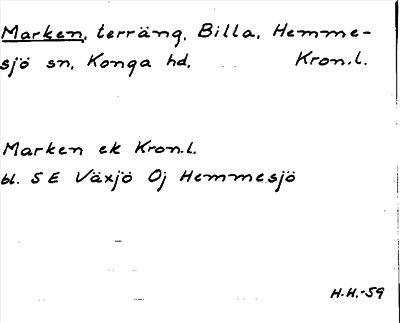 Marken, terräng, Billa, Hemme-
sjö sn, Konga hd, Kron.l.
Marken ek Kron.l.
bl. 5 E Växjö Oj Hemmesjö
H.H.-59